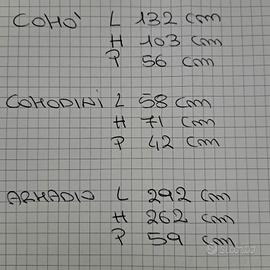 COMO' L 132 cm
H 103 cm
P 56 cm
COMODINI L 58 cm
H 71 cm
P 42 cm
ARMADIO L 292 cm
H 262 cm
P 59 cm